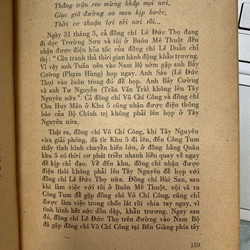 Thắng trận reo mừng khắp mọi nơi,
Giục giã đường xa mau kịp bước,
Thời cơ thuận lợi tới nơi rồi...
Ngày 31 tháng 3, cả đồng chí Lê Đức Thọ đang
đi dọc Trường Sơn và tôi ở Buôn Mê Thuột đều
nhận được điện hỏa tốc của đồng chí Lê Duẩn chỉ
thị: “Cần tranh thủ thời gian hành động khẩn trương.
Vì vậy anh Tuấn nên vào Nam Bộ sớm gặp anh Bảy
Cường (Phạm Hùng) họp ngay. Anh Sáu (Lê Đức
Thọ) vào đó cũng họp luôn. Anh Bảy Cường
và anh Tư Nguyễn (Trần Văn Trà) không lên Tây
Nguyên nữa”. Cả đồng chí Võ Chí Công và đồng chí
Chu Huy Mân ở Khu 5 cũng nhận được điện thông
báo của Bộ Chính trị không phải lên họp ở Tây
Nguyên nữa.
Thật ra, đồng chí Võ Chí Công, khi Tây Nguyên
vừa giải phóng, đã từ Khu 5 đi lên, đến Công Tum
thấy tình hình chuyển biến lớn, ở đồng bằng Quân
khu 5 có thời cơ phát triển nhanh liền quay về ngay
để kịp chỉ đạo. Về đến Khu, đồng chí nhận được
điện không phải lên họp Tây Nguyên để gặp đồng
chí Lê Đức Thọ nữa. Đồng chí Bùi San, sau
khi làm việc với tôi ở Buôn Mê Thuột, vội ra
Công Tum để gặp đồng chí Võ Chí Công, hai đồng
chí làm việc trong chốc lát rồi chia tay ngay, vì
tình hình hết sức dồn dập, khẩn trương. Ngay sau
đó, đồng chí Lê Đức Thọ trên đường vào Nam Bộ đã
gặp đồng chí Võ Chí Công tại Bến Giàng phía tây
159